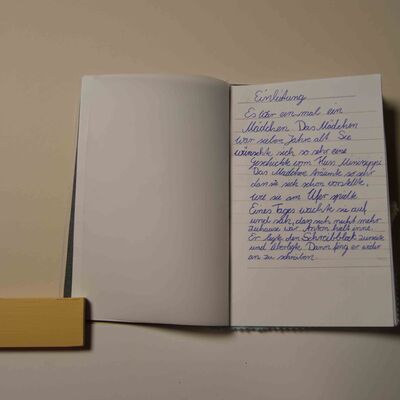 Einleitung
Es war ein mal ein
Mädchen. Das Mädchen
war sieben Jahre alt. Sie
wünschte sich so sehr eine
Geschichte vom Fluss Missisippi.
Das Mädchen träumte so sehr
dan sie sich schon vorstellte,
wie sie am Ufer spielte.
Eines Tages wachte sie auf
und sah, dass sich nicht mehr
zuhause war. Anton hielt inne.
Er legte den Schreibblock zurück
und überlegte. Dann fing er wider
an zu schreiben.